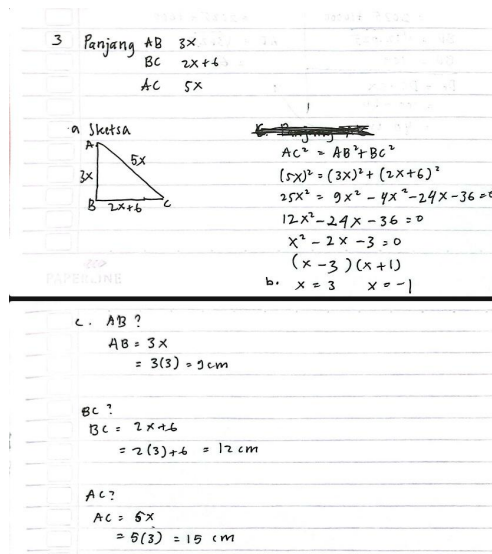 3 Panjang AB 3x
BC 2x+6
AC 5x
a Sketsa
A
5x
3x
B 2x+6 C
AC² = AB²+BC²
(5x)² = (3x)² + (2x+6)²
25x² = 9x² - 4x² - 24x - 36 = 0
12x² - 24x - 36 = 0
x² - 2x - 3 = 0
(x-3)(x+1)
b. x = 3 x = -1
PAPERLINE
c. AB?
AB = 3x
= 3(3) = 9 cm
BC?
BC = 2x+6
= 2(3)+6 = 12 cm
AC?
AC = 5x
= 5(3) = 15 cm